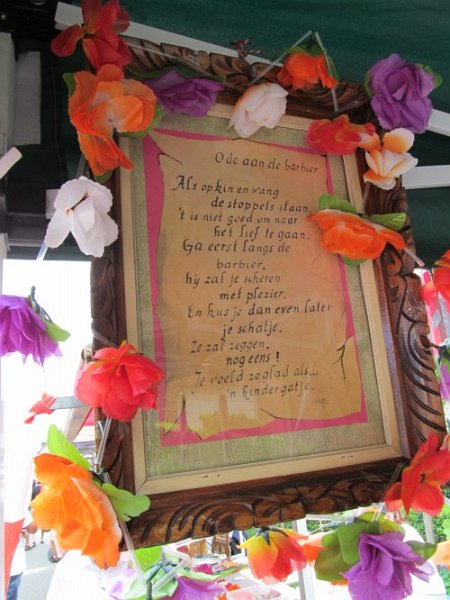 Ode aan de barbier
Als op kin en wang
de stoppels staan,
't is niet goed om naar
het lief te gaan.
Ga eerst langs de
barbier,
hij zal je scheren
met plezier.
En kus je dan even later
je schatje.
Ze zal zeggen,
nog eens!
Je voeld zo glad als...
'n kindergatje.